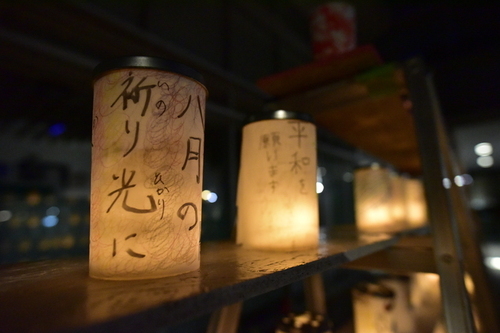 八月の
祈り光に
いの
ひかり
平和を
願います